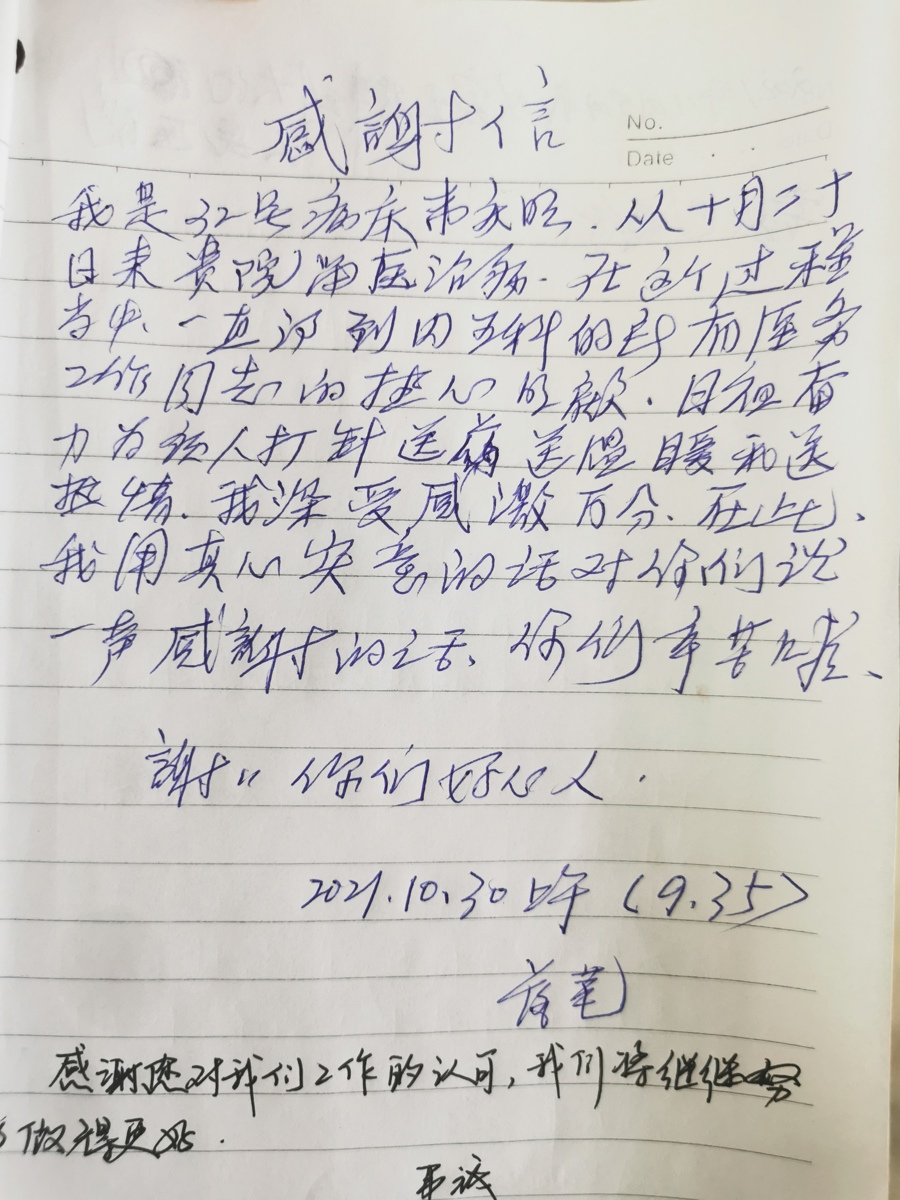 感謝信
No.
Date
我是32号病床韦永旺.从十月二十
日来贵院涌医治病.在这个过程
当中.一直得到内五科的所有医务
工作同志的热心照顾.日夜奋
力为病人打针送药送温暖和送
热情.我深受感激万分.在此、
我用真心实意的话对你们说
一声感謝的话、你们辛苦啦、
謝〃你们好心人.
2021.10.30上午(9.35)
落笔
感谢您对我们工作的认可,我们将继继努
做得更好.